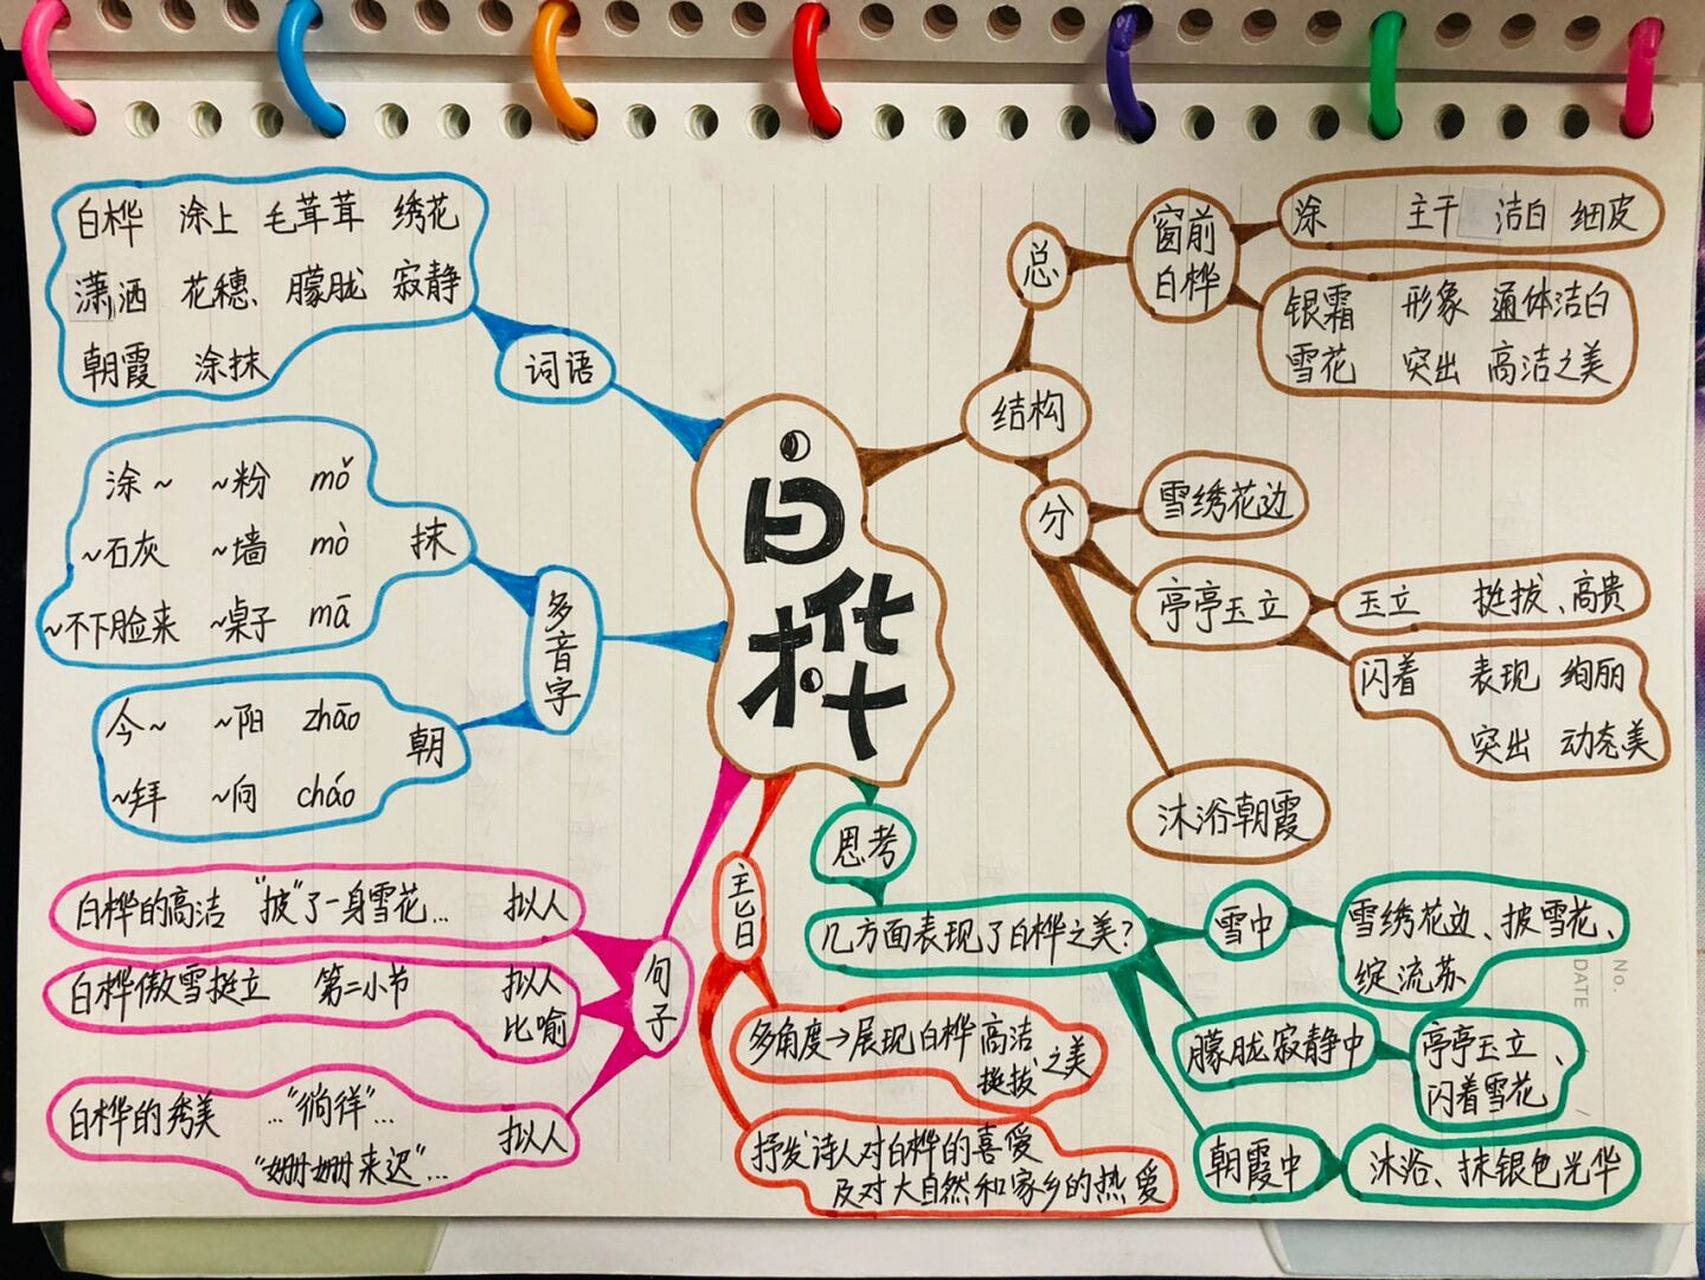 白桦
词语
白桦 涂上 毛茸茸 绣花
潇洒 花穗、 朦胧 寂静
朝霞 涂抹
多音字
抹
涂~ ~粉 mǒ
~石灰 ~墙 mò
~不下脸来 ~桌子 mā
朝
今~ ~阳 zhāo
~拜 ~向 cháo
句子
白桦的高洁 “披”了一身雪花… 拟人
白桦傲雪挺立 第二小节 拟人
比喻
白桦的秀美 …“徜徉”…
“姗姗来迟”… 拟人
主旨
多角度→展现白桦高洁
挺拔、之美
抒发诗人对白桦的喜爱
及对大自然和家乡的热爱
思考
几方面表现了白桦之美?
雪中
雪绣花边、披雪花、
绽流苏
朦胧寂静中
亭亭玉立、
闪着雪花
朝霞中
沐浴、抹银色光华
结构
总
窗前
白桦
涂 主干 洁白 细皮
银霜 形象 通体洁白
雪花 突出 高洁之美
分
雪绣花边
亭亭玉立
玉立 挺拔、高贵
闪着 表现 绚丽
突出 动态美
沐浴朝霞
No.
DATE